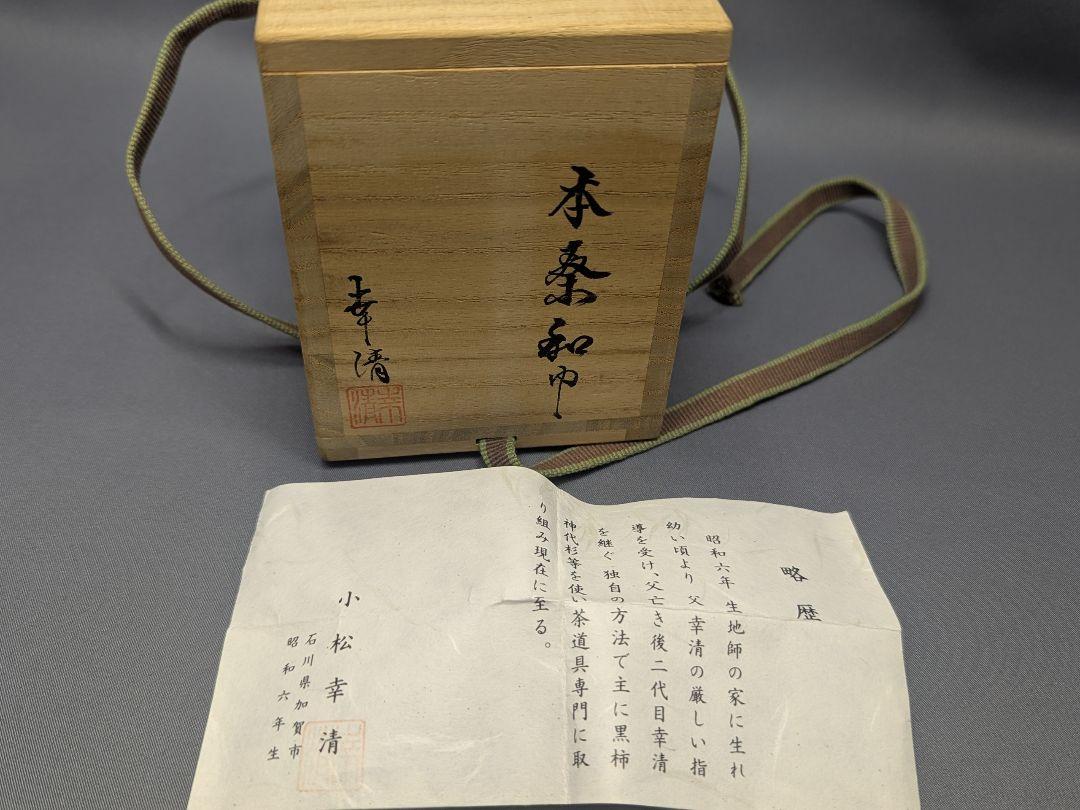 本桑和巾
幸清
略歴
昭和六年 生地師の家に生れ
幼い頃より 父 幸清の厳しい指
導を受け、父亡き後二代目幸清
を継ぐ 独自の方法で主に黒柿
神代杉等を使い茶道具専門に取
り組み現在に至る。
小松幸清
石川県加賀市
昭和六年生